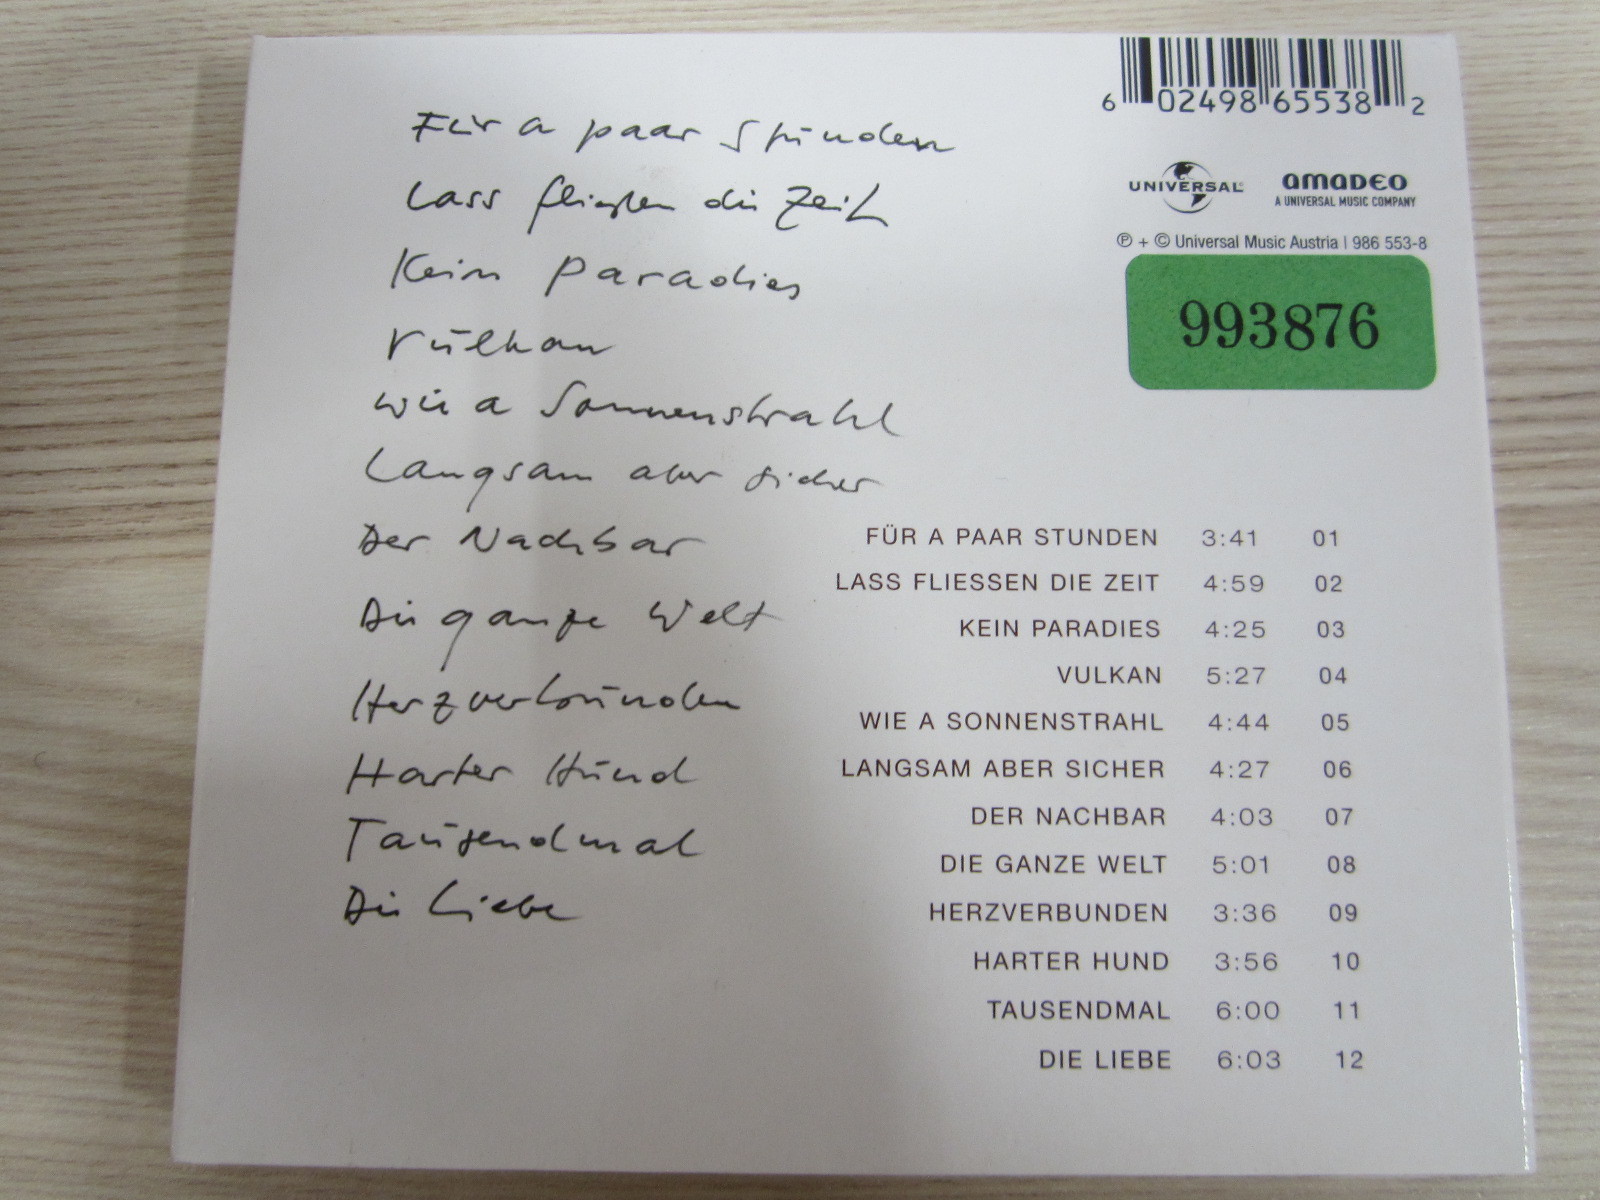 Für a paar Stunden
Lass fließen die Zeit
Kein Paradies
Vulkan
Wie a Sonnenstrahl
Langsam aber sicher
Der Nachbar
Die ganze Welt
Herzverbunden
Harter Hund
Tausendmal
Die Liebe
6 02498 65538 2
UNIVERSAL
amadeo
A UNIVERSAL MUSIC COMPANY
℗ + © Universal Music Austria | 986 553-8
993876
FÜR A PAAR STUNDEN 3:41 01
LASS FLIESSEN DIE ZEIT 4:59 02
KEIN PARADIES 4:25 03
VULKAN 5:27 04
WIE A SONNENSTRAHL 4:44 05
LANGSAM ABER SICHER 4:27 06
DER NACHBAR 4:03 07
DIE GANZE WELT 5:01 08
HERZVERBUNDEN 3:36 09
HARTER HUND 3:56 10
TAUSENDMAL 6:00 11
DIE LIEBE 6:03 12